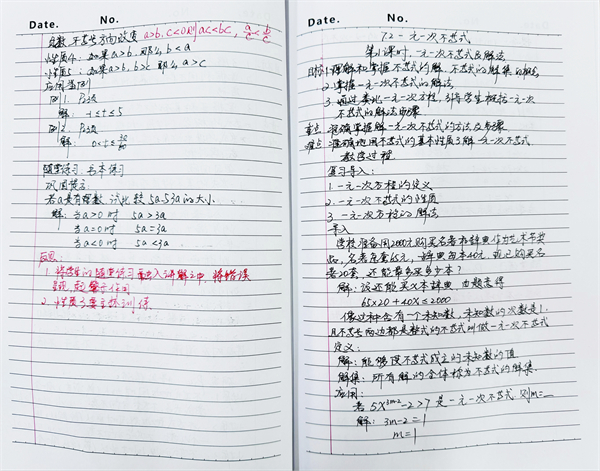 Date. No.
负数, 不等号方向改变 a>b. c<0则 ac<bc, a/c<b/c
性质4: 如果a>b. 那么 b<a
性质5: 如果a>b, b>c 那么 a>c
应用举例
例1. P52
解:
例2. P52
解:
随堂练习: 书本练习
巩固提高:
若a是有理数, 试比较 5a与3a的大小
解: 当a>0时 5a>3a
当a=0时 5a=3a
当a<0时 5a<3a
反思:
1. 将学生的随堂练习 入讲解之中, 将错误
2. 性质3要主抓训练
Date. No.
7.2 一元一次不等式
第1课时: 一元一次不等式及解法
目标: 1. 理解和掌握不等式的解、不等式的解集的概念
2. 掌握一元一次不等式的解法
3. 通过类比一元一次方程, 引导学生概括一元一次
不等式的解法步骤
重点: 准确掌握解一元一次不等式的方法及步骤
难点: 准确地用不等式的基本性质3解一元一次不等式
教学过程
复习导入:
1. 一元一次方程的定义
2. 一元一次不等式的性质
3. 一元一次方程的解法
导入
学校准备用2000元购买名著和辞典作为艺术节奖
品, 名著每套65元, 辞典每本40元, 现已购买名
著20套, 还能最多买多少本?
解: 设还能买x本辞典 由题意得
65×20+40x≤2000
像这种含有一个未知数, 未知数的次数是1.
且不等号两边都是整式的不等式叫做一元一次不等式
定义:
解: 能够使不等式成立的未知数的值
解集: 所有解的全体称为不等式的解集
应用:
若 5x^(3m-2)-2>7 是一元一次不等式 则m=__
解: 3m-2=1
m=1